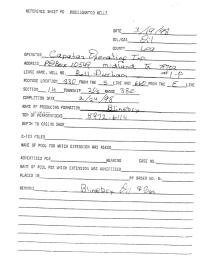 REFERENCE SHEET FOR UNDESIGNATED WELLS
DATE 3/19/98
OIL/GAS Oil
COUNTY Lea
OPERATOR Capataz Operating Inc.
ADDRESS P.O. Box 10549 midland Tx 79702
LEASE NAME, WELL NO. Bell #1-P
FOOTAGE LOCATION: 330 FROM THE S LINE AND 660 FROM THE E LINE
SECTION 14 TOWNSHIP RANGE 38E
COMPLETION DATE 2/24/98
NAME OF PRODUCING FORMATION Blinebry
TOP OF PERFORATIONS 5972-6114
DEPTH TO CASING SHOE
C-123 FILED
NAME OF POOL FOR WHICH EXTENSION WAS ASKED
ADVERTISED FOR HEARING CASE NO.
NAME OF POOL FOR WHICH EXTENSION WAS ADVERTISED
PLACED IN BY ORDER NO. R-
REMARKS Blinebry Oil & Gas